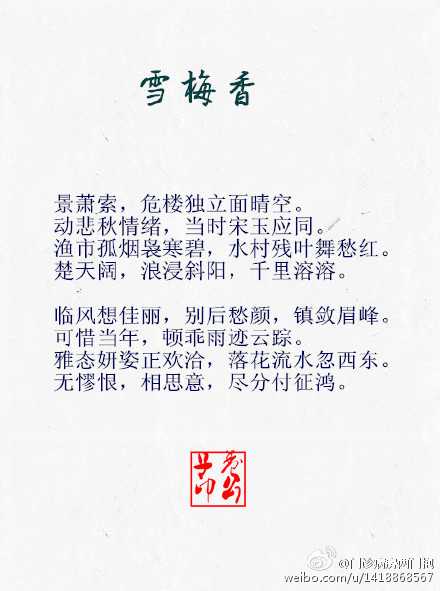 雪梅香
景萧索，危楼独立面晴空。
动悲秋情绪，当时宋玉应同。
渔市孤烟袅寒碧，水村残叶舞愁红。
楚天阔，浪浸斜阳，千里溶溶。
临风想佳丽，别后愁颜，镇敛眉峰。
可惜当年，顿乖雨迹云踪。
雅态妍姿正欢洽，落花流水忽西东。
无憀恨，相思意，尽分付征鸿。
weibo.com/u/1418868567